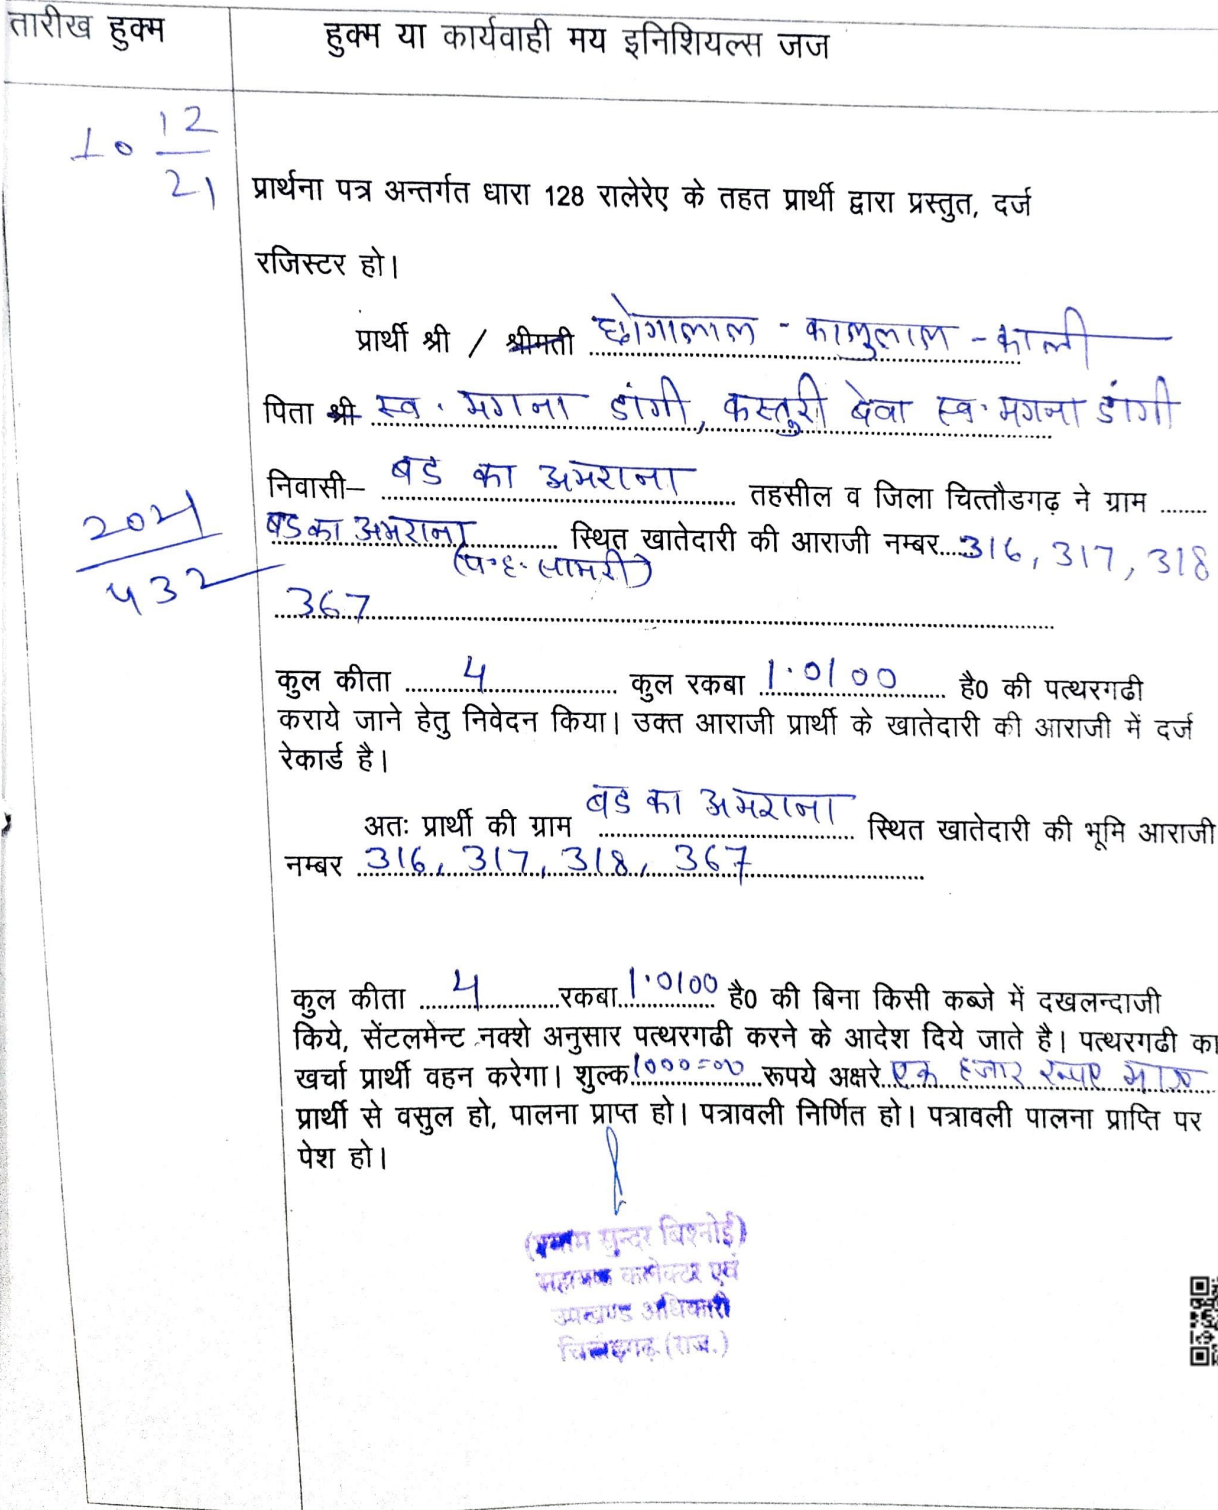 तारीख हुक्म
हुक्म या कार्यवाही मय इनिशियल्स जज
10 12/21
प्रार्थना पत्र अन्तर्गत धारा 128 रालेरेए के तहत प्रार्थी द्वारा प्रस्तुत, दर्ज
रजिस्टर हो।
प्रार्थी श्री / श्रीमती छोगालाल - कालुलाल - काली
पिता श्री स्व. मगना डांगी, कस्तुरी बेवा स्व. मगना डांगी
निवासी– बड का अमराना तहसील व जिला चित्तौडगढ़ ने ग्राम ........
बड का अमराना स्थित खातेदारी की आराजी नम्बर 316, 317, 318
(प.ह. सामरी)
2021/432
367
कुल कीता 4 कुल रकबा 1.0100 है0 की पत्थरगढी
कराये जाने हेतु निवेदन किया। उक्त आराजी प्रार्थी के खातेदारी की आराजी में दर्ज
रेकार्ड है।
अतः प्रार्थी की ग्राम बड का अमराना स्थित खातेदारी की भूमि आराजी
नम्बर 316, 317, 318, 367
कुल कीता 4 रकबा 1.0100 है0 की बिना किसी कब्जे में दखलन्दाजी
किये, सेंटलमेन्ट नक्शे अनुसार पत्थरगढी करने के आदेश दिये जाते है। पत्थरगढी का
खर्चा प्रार्थी वहन करेगा। शुल्क 1000=00 रूपये अक्षरे एक हजार रूपए मात्र
प्रार्थी से वसुल हो, पालना प्राप्त हो। पत्रावली निर्णित हो। पत्रावली पालना प्राप्ति पर
पेश हो।
(श्याम सुन्दर बिश्नोई)
सहायक कलेक्टर एवं
उपखण्ड अधिकारी
चित्तौड़गढ़ (राज.)